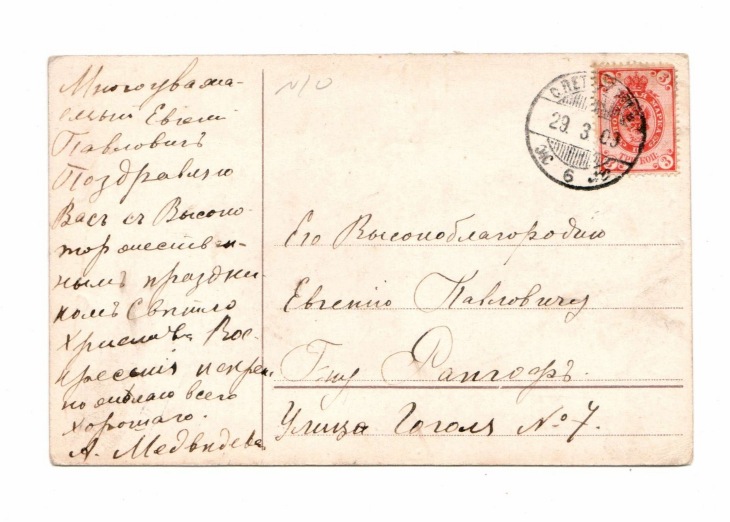 Многоува-
емый Евгенiй
Павловичъ
Поздравляю
Васъ съ Высоко-
торжествен-
нымъ праздни-
комъ Свѣтло
Христова Вос-
кресенiя искрен
но желаю всего
хорошаго.
А. Медвѣдева
N/U
С.ПЕТ
29. 3. 09
6
3 3
МАРКА
3 3
Его Высокоблагородiю
Евгенiю Павловичу
Гну Рапгофъ.
Улица Гоголя № 7.